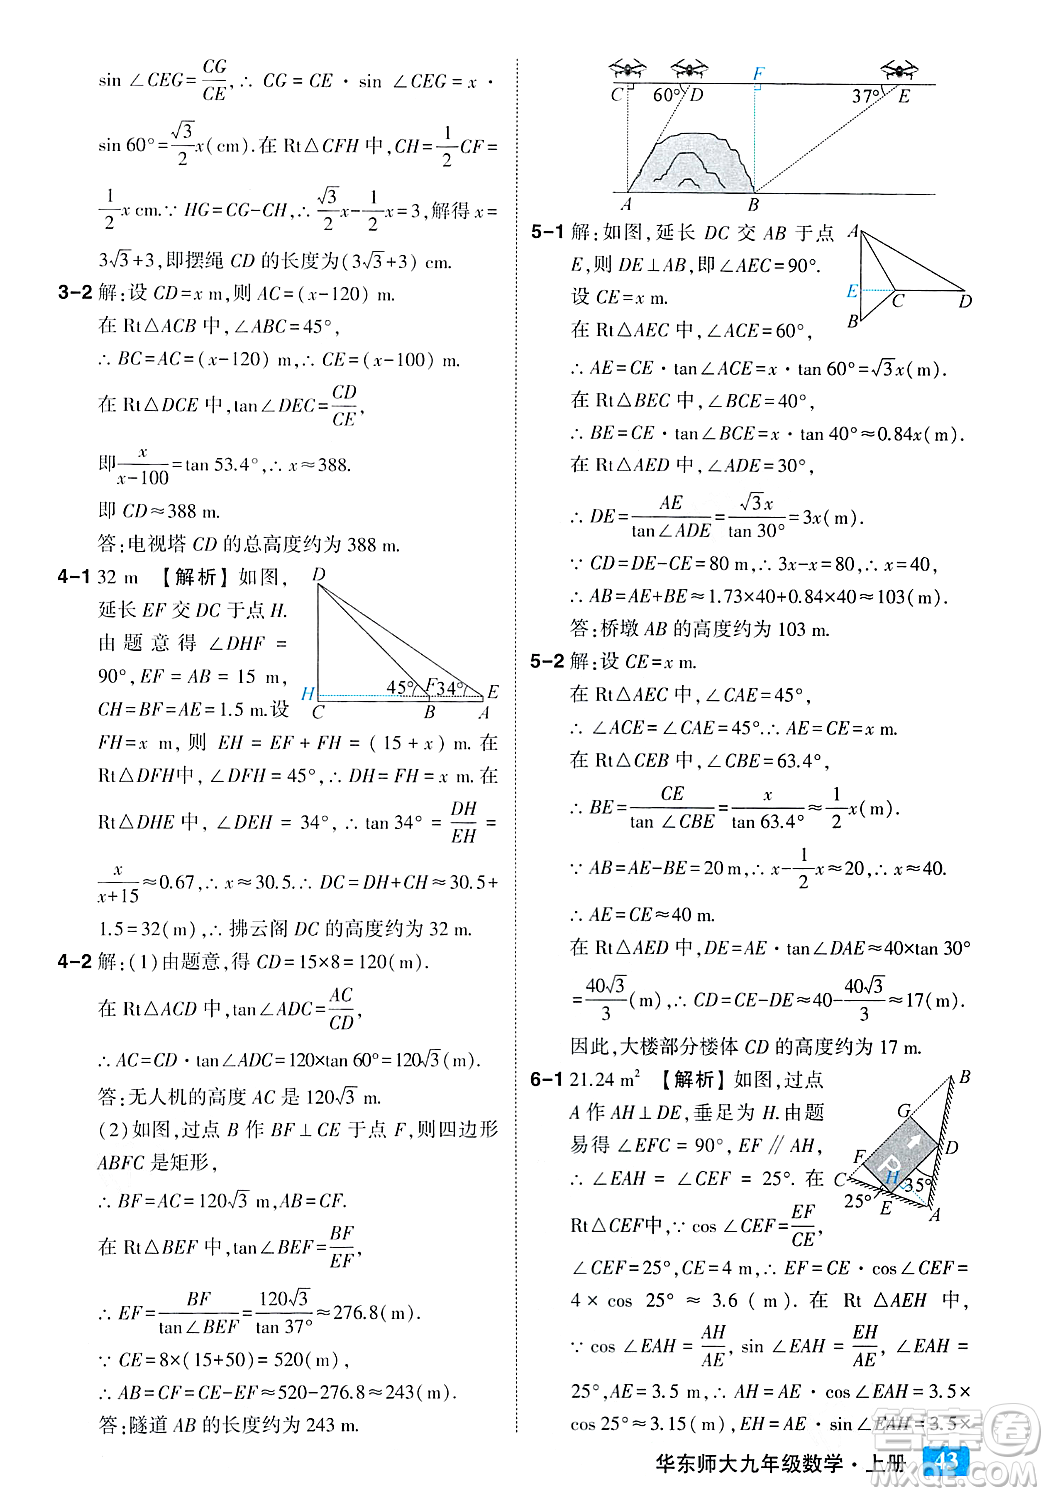 sin ∠CEG=CG/CE,∴ CG=CE·sin ∠CEG=x·
sin 60°=√3/2x(cm).在 Rt△CFH 中,CH=1/2CF=
1/2x cm.∵ HG=CG-CH,∴ √3/2x-1/2x=3,解得 x=
3√3+3,即摆绳 CD 的长度为(3√3+3) cm.
3-2 解:设 CD=x m,则 AC=(x-120) m.
在 Rt△ACB 中,∠ABC=45°,
∴ BC=AC=(x-120) m,∴ CE=(x-100) m.
在 Rt△DCE 中,tan∠DEC=CD/CE,
即x/(x-100)=tan 53.4°,∴ x≈388.
即 CD≈388 m.
答:电视塔 CD 的总高度约为 388 m.
4-1 32 m 【解析】如图,
延长 EF 交 DC 于点 H.
由题意得∠DHF=
90°,EF=AB=15 m,
CH=BF=AE=1.5 m.设
FH=x m,则 EH=EF+FH=(15+x) m.在
Rt△DFH中,∠DFH=45°,∴ DH=FH=x m.在
Rt△DHE 中,∠DEH=34°,∴ tan 34°=DH/EH=
x/(x+15)≈0.67,∴ x≈30.5.∴ DC=DH+CH≈30.5+
1.5=32(m),∴ 拂云阁 DC 的高度约为 32 m.
4-2 解:(1)由题意,得 CD=15×8=120(m).
在 Rt△ACD 中,tan∠ADC=AC/CD,
∴ AC=CD·tan∠ADC=120×tan 60°=120√3(m).
答:无人机的高度 AC 是 120√3 m.
(2)如图,过点 B 作 BF⊥CE 于点 F,则四边形
ABFC 是矩形,
∴ BF=AC=120√3 m,AB=CF.
在 Rt△BEF 中,tan∠BEF=BF/EF,
∴ EF=BF/tan∠BEF=120√3/tan 37°≈276.8(m).
∵ CE=8×(15+50)=520(m),
∴ AB=CF=CE-EF≈520-276.8≈243(m).
答:隧道 AB 的长度约为 243 m.
D
H 45° F 34° E
C B A
C 60° D F 37° E
A B
5-1 解:如图,延长 DC 交 AB 于点
E,则 DE⊥AB,即∠AEC=90°.
设 CE=x m.
在 Rt△AEC 中,∠ACE=60°,
∴ AE=CE·tan∠ACE=x·tan 60°=√3x(m).
在 Rt△BEC 中,∠BCE=40°,
∴ BE=CE·tan∠BCE=x·tan 40°≈0.84x(m).
在 Rt△AED 中,∠ADE=30°,
∴ DE=AE/tan∠ADE=√3x/tan 30°=3x(m).
∵ CD=DE-CE=80 m,∴ 3x-x=80,∴ x=40,
∴ AB=AE+BE≈1.73×40+0.84×40≈103(m).
答:桥墩 AB 的高度约为 103 m.
A
E C D
B
5-2 解:设 CE=x m.
在 Rt△AEC 中,∠CAE=45°,
∴ ∠ACE=∠CAE=45°.∴ AE=CE=x m.
在 Rt△CEB 中,∠CBE=63.4°,
∴ BE=CE/tan ∠CBE=x/tan 63.4°≈1/2x(m).
∵ AB=AE-BE=20 m,∴ x-1/2x≈20,∴ x≈40,
∴ AE=CE≈40 m.
在 Rt△AED 中,DE=AE·tan∠DAE≈40×tan 30°
=40√3/3(m),∴ CD=CE-DE≈40-40√3/3≈17(m).
因此,大楼部分楼体 CD 的高度约为 17 m.
6-1 21.24 m² 【解析】如图,过点
A 作 AH⊥DE,垂足为 H.由题
易得∠EFC=90°,EF∥AH,
∴ ∠EAH=∠CEF=25°.在
Rt△CEF中,∵ cos ∠CEF=EF/CE,
∠CEF=25°,CE=4 m,∴ EF=CE·cos∠CEF=
4×cos 25°≈3.6(m).在 Rt △AEH 中,
∵ cos∠EAH=AH/AE,sin ∠EAH=EH/AE,∠EAH=
25°,AE=3.5 m,∴ AH=AE·cos∠EAH=3.5×
cos25°≈3.15(m),EH=AE·sin∠EAH=3.5×
B
G
D
F
C
P
H 35°
25° E
A
华东师大九年级数学·上册 43
答案圈
MXQE.COM